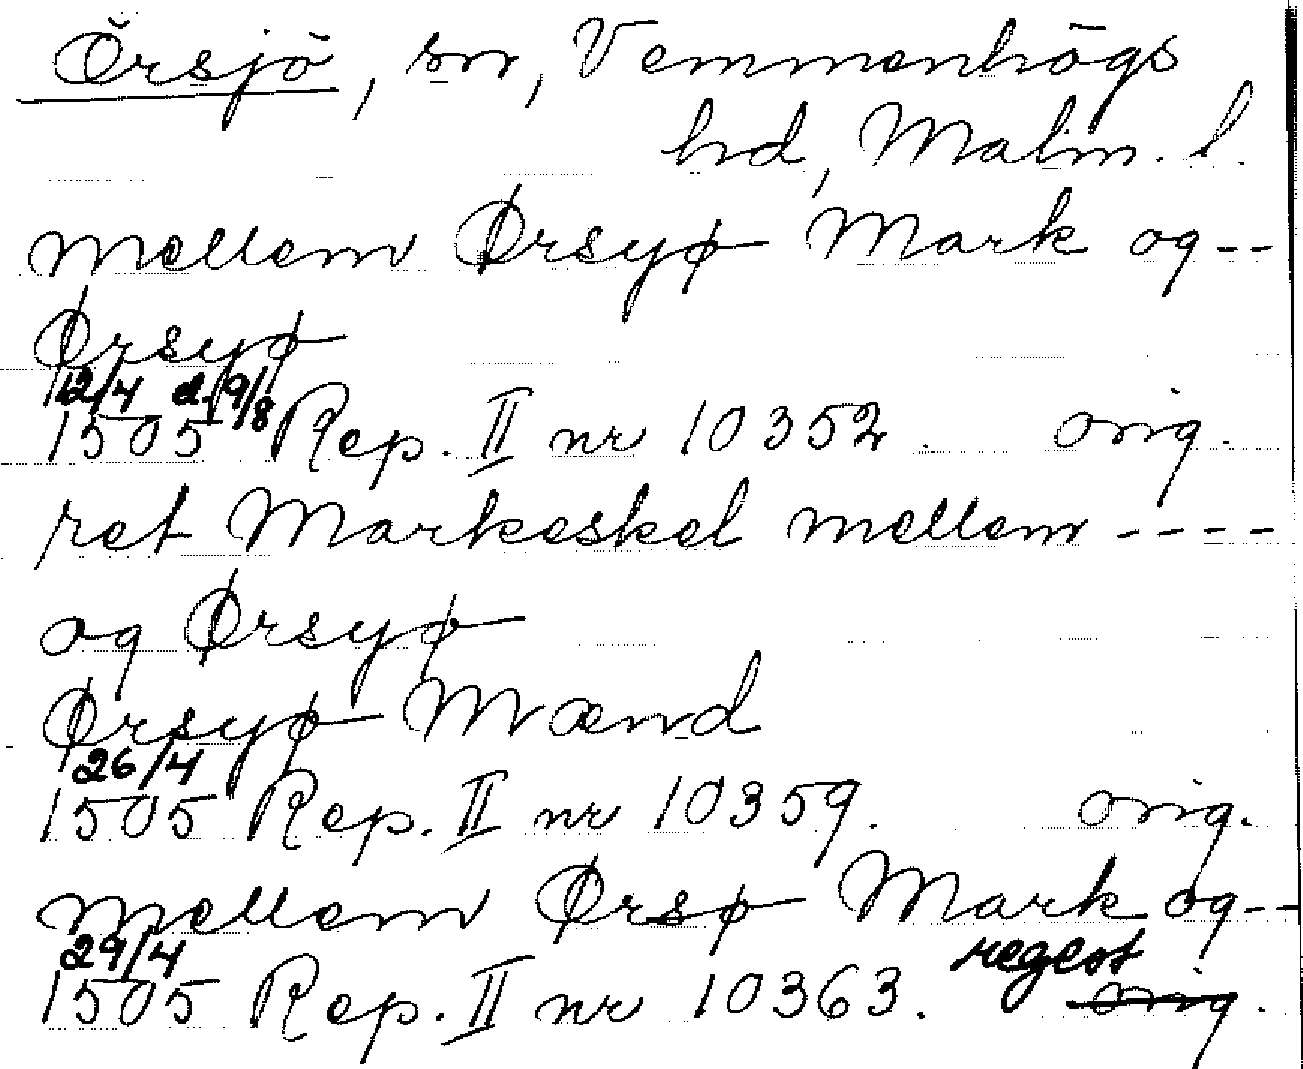 Örsjö, sn, Vemmenhögs
hd, Malm. l.
mellem Ørsyø Mark og--
Ørsyø
12/4 d. 9/8
1505 Rep. II nr 10352. orig.
ret Markeskel mellem ----
og Ørsyø
Ørsyø Mænd
26/4
1505 Rep. II nr 10359. orig.
mellem Ørsø Mark og--
29/4 regest
1505 Rep. II nr 10363. orig.